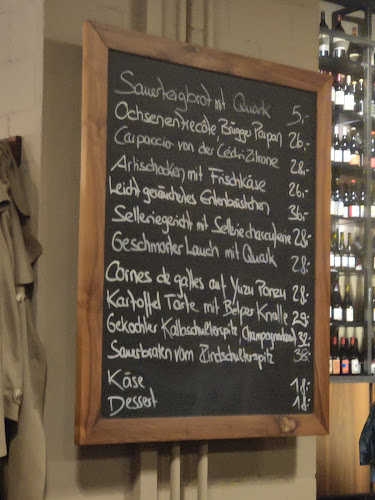 Sauerteigbrot mit Quark 5.-
Ochsenentrecôte Brügge Papan 26.-
Carpaccio von der Cédri Zitrone 28.-
Artischocken mit Frischkäse 26.-
Leicht geräuchertes Entenbrüstchen 36.-
Selleriegericht mit Selleriecharcuterie 28.-
Geschmorter Lauch mit Quark 28.-
Cornes de gattes auf Yuzu Ponzu 28.-
Kartoffel Tarte mit Belper Knolle 29.-
Gekochter Kalbschulterspitz, Champagnerkraut 39.-
Sauerbraten vom Rindschulterspitz 38.-
Käse 18.-
Dessert 18.-